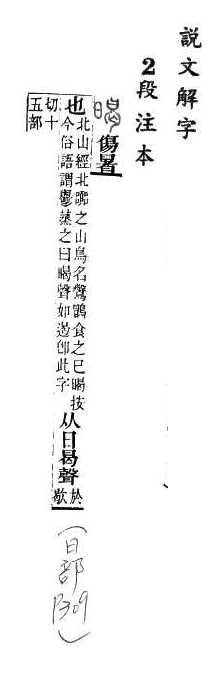 說文解字
2段注本
暍
傷暑
也北山經北嚻之山鳥名鷩鶥食之已暍按今俗語謂鬱蒸之曰暍聲如遏卽此字从日曷聲於歇
切十五部
(日部P309)